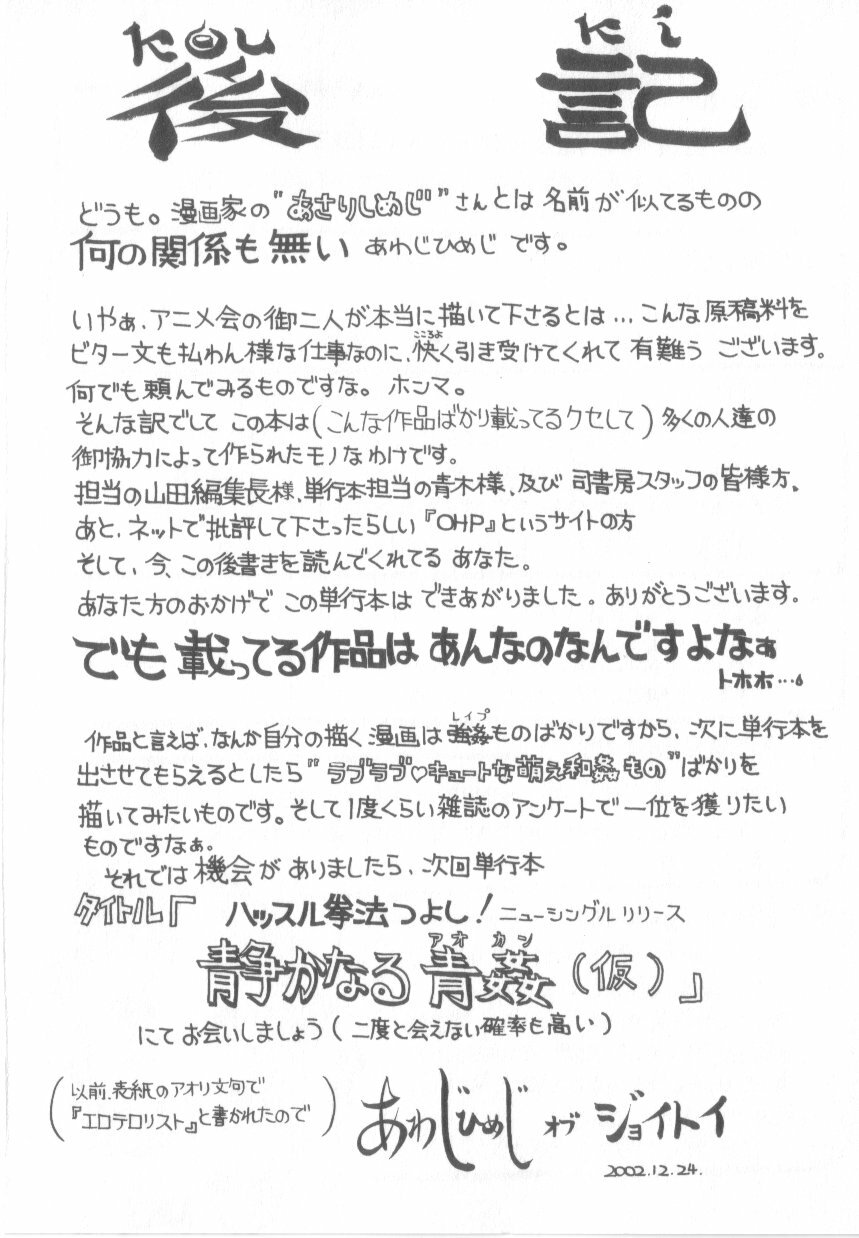 KOU KI
後 記
どうも。漫画家の"あさりしめじ"さんとは名前が似てるものの
何の関係も無い あわじひめじ です。
いやぁ、アニメ会の御二人が本当に描いて下さるとは…こんな原稿料を
ビター文も払わん様な仕事なのに、快く引き受けてくれて 有難う ございます。
こころよ
何でも頼んでみるものですな。ホンマ。
そんな訳でして この本は(こんな作品ばかり載ってるクセして)多くの人達の
御協力によって作られたモノなわけです。
担当の山田編集長様、単行本担当の青木様、及び 司書房スタッフの皆様方。
あと、ネットで批評して下さったらしい『OHP』というサイトの方
そして、今、この後書きを読んでくれてる あなた。
あなた方のおかげで この単行本は できあがりました。ありがとうございます。
でも 載ってる作品は あんなのなんですよなぁ
トホホ…。
作品と言えば、なんか自分の描く漫画は強姦ものばかりですから、次に単行本を
レイプ
出させてもらえるとしたら"ラブラブ♡キュートな萌え和姦もの"ばかりを
描いてみたいものです。そして1度くらい雑誌のアンケートで一位を獲りたい
ものですなぁ。
それでは 機会が ありましたら、次回単行本
タイトル『 ハッスル拳法つよし! ニューシングルリリース
アオカン
静かなる 青姦 (仮)』
にて お会いしましょう(二度と会えない確率も高い)
(以前、表紙のアオリ文句で
『エロテロリスト』と書かれたので)
あわじひめじ オブ ジョイトイ
2002.12.24.